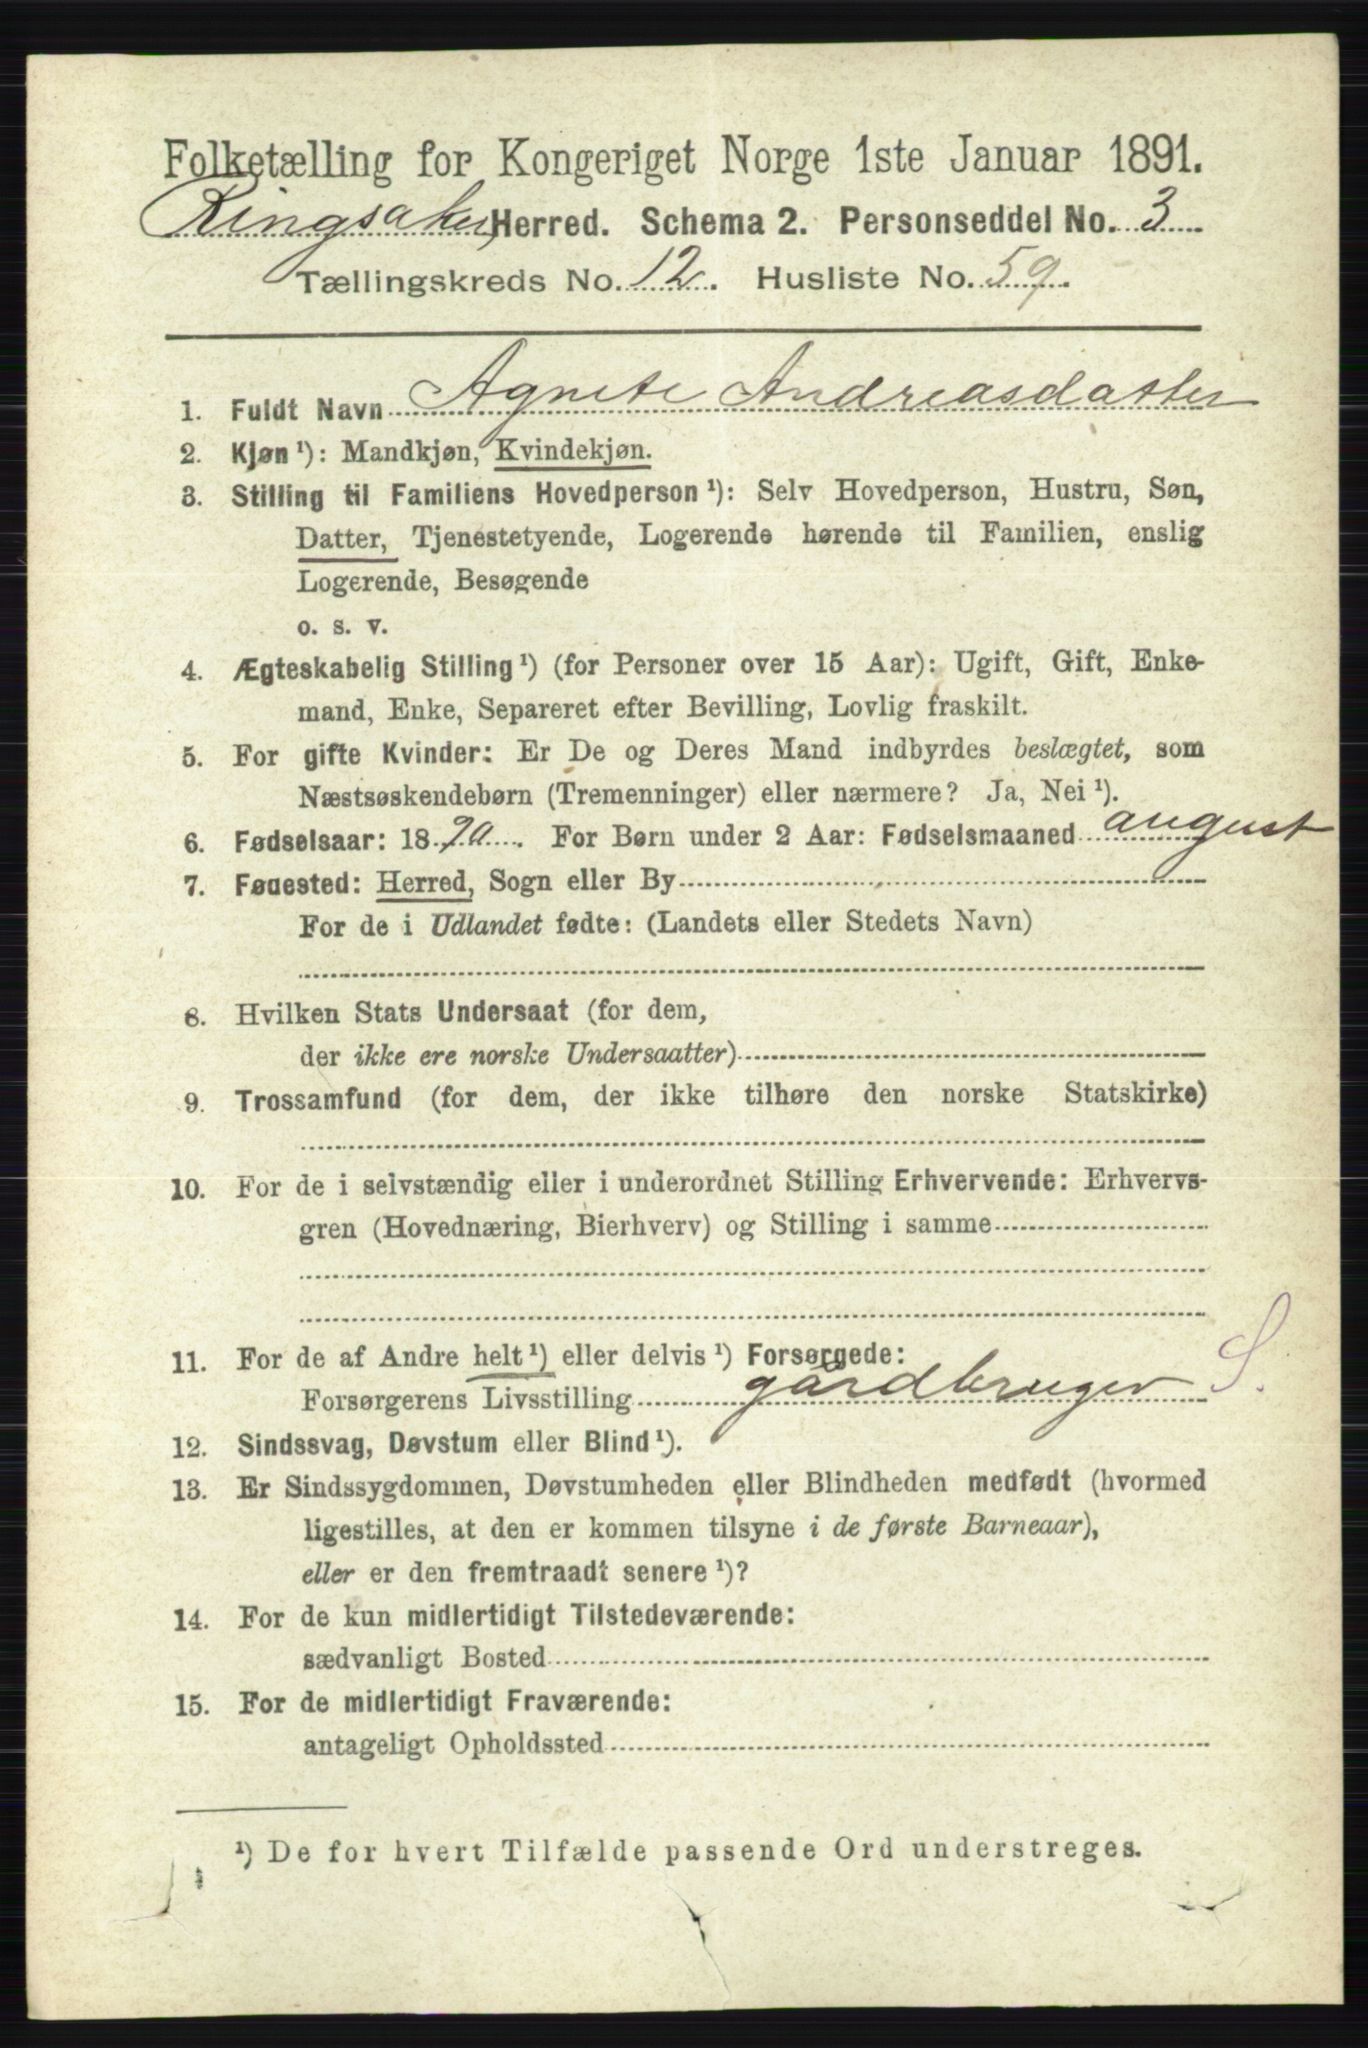 Folketælling for Kongeriget Norge 1ste Januar 1891.
Ringsaker Herred. Schema 2. Personseddel No. 3
Tællingskreds No. 12. Husliste No. 59.
1. Fuldt Navn Agnete Andreasdatter
2. Kjøn ¹): Mandkjøn, Kvindekjøn.
3. Stilling til Familiens Hovedperson ¹): Selv Hovedperson, Hustru, Søn,
Datter, Tjenestetyende, Logerende hørende til Familien, enslig
Logerende, Besøgende
o. s. v.
4. Ægteskabelig Stilling ¹) (for Personer over 15 Aar): Ugift, Gift, Enke-
mand, Enke, Separeret efter Bevilling, Lovlig fraskilt.
5. For gifte Kvinder: Er De og Deres Mand indbyrdes beslægtet, som
Næstsøskendebørn (Tremenninger) eller nærmere? Ja, Nei ¹).
6. Fødselsaar: 1890. For Børn under 2 Aar: Fødselsmaaned august
7. Fødested: Herred, Sogn eller By
For de i Udlandet fødte: (Landets eller Stedets Navn)
8. Hvilken Stats Undersaat (for dem,
der ikke ere norske Undersaatter)
9. Trossamfund (for dem, der ikke tilhøre den norske Statskirke)
10. For de i selvstændig eller i underordnet Stilling Erhvervende: Erhvervs-
gren (Hovednæring, Bierhverv) og Stilling i samme
11. For de af Andre helt ¹) eller delvis ¹) Forsørgede:
Forsørgerens Livsstilling gårdbruger S.
12. Sindssvag, Døvstum eller Blind ¹).
13. Er Sindssygdommen, Døvstumheden eller Blindheden medfødt (hvormed
ligestilles, at den er kommen tilsyne i de første Barneaar),
eller er den fremtraadt senere ¹)?
14. For de kun midlertidigt Tilstedeværende:
sædvanligt Bosted
15. For de midlertidigt Fraværende:
antageligt Opholdssted
¹) De for hvert Tilfælde passende Ord understreges.